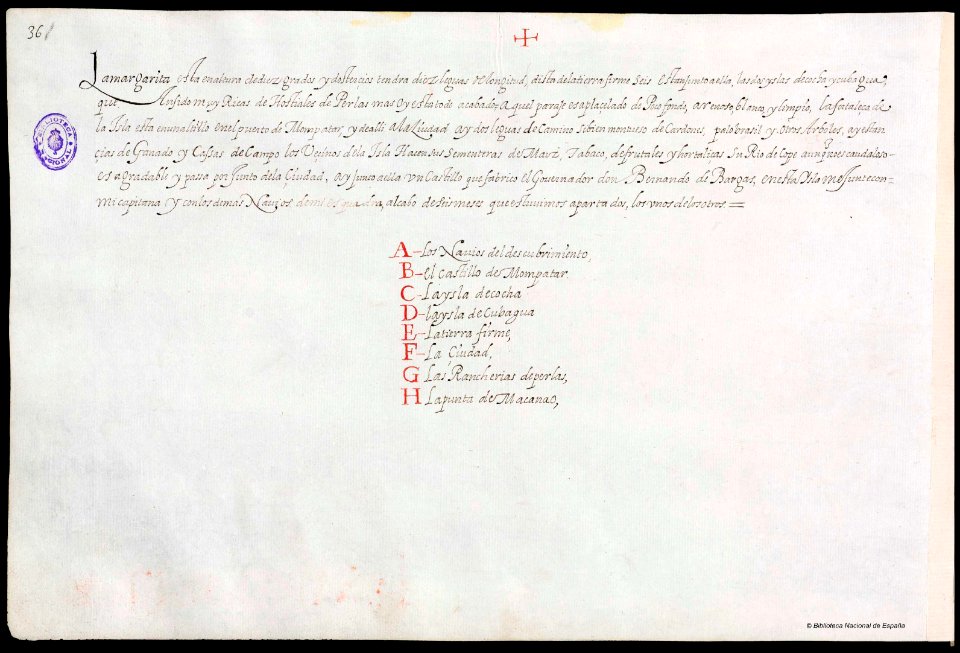 36
Lamargarita esta enaltura dedozegrados y dostercios tendra diez leguas de longitud, dista delatierra firme seis estanjunto aella, las dos yslas decocha y cubagua,
que Ansido muy Ricas de Hostiales de Perlas mas oy estatodo acabado, Aquel paraje es aplacelado de Poco fondo, arenoso blanco, y limpio, la fataleca de
la Isla esta enunaltillo enelpuerto de Mompatar, y dealli ala Ciudad ay dos leguas de Camino Sibien montuoso de Cardones, palobrasil y otros Arboles, ay estan
cias de Ganado y Cassas de Campo los Vecinos dela Isla Hacen sus Sementeras de Maiz, Tabaco, de frutales y hortalizas Su Rio de Cope aunque es caudaloso -
es agradable y passa por junto dela Ciudad, ay junto aella Vn Castillo que fabrico el Governador don Bernando de Bargas, en esta Ysla me junte con-
mi capitana y conlosdemas Navios demi esquadra, alcabo de seis meses que estuvimos apartados, los vnos delosotros =
A - Los Navios del descubrimiento,
B - El Castillo de Mompatar
C - Laysla decocha
D - laysla de Cubagua
E - Latierra firme,
F - La Ciudad,
G Las Rancherias deperlas,
H Lapunta de Macanao,
BIBLIOTECA NACIONAL
© Biblioteca Nacional de España